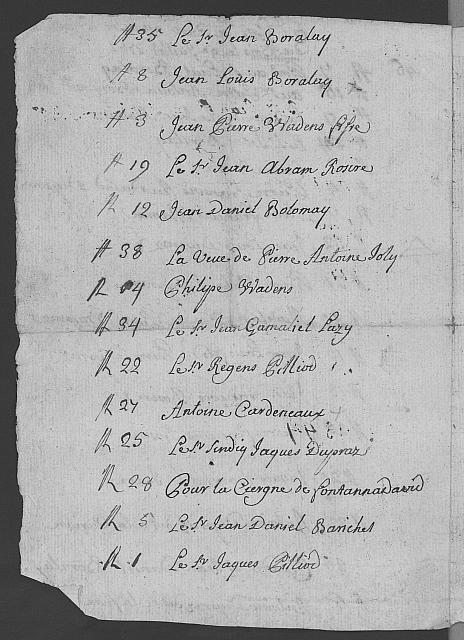 № 35 Le Sr Jean Boralay
№ 8 Jean Louis Boralay
№ 3 Jean Pierre Wadens
№ 19 Le Sr Jean Abram Rosire
№ 12 Jean Daniel Bolomay
№ 38 La Veue de Pierre Antoine Joly
№ 14 Philipe Wadens
№ 34 Le Sr Jean Gamaliel Lazy
№ 22 Le Sr Regens Cilliod
№ 27 Antoine Cardeneaux
№ 25 Le Sr Sindiq Jaques Dupraz
№ 28 Pour la Ciergne de Fontannadavid
№ 5 Le Sr Jean Daniel Barichet
№ 1 Le Sr Jaques Cilliod